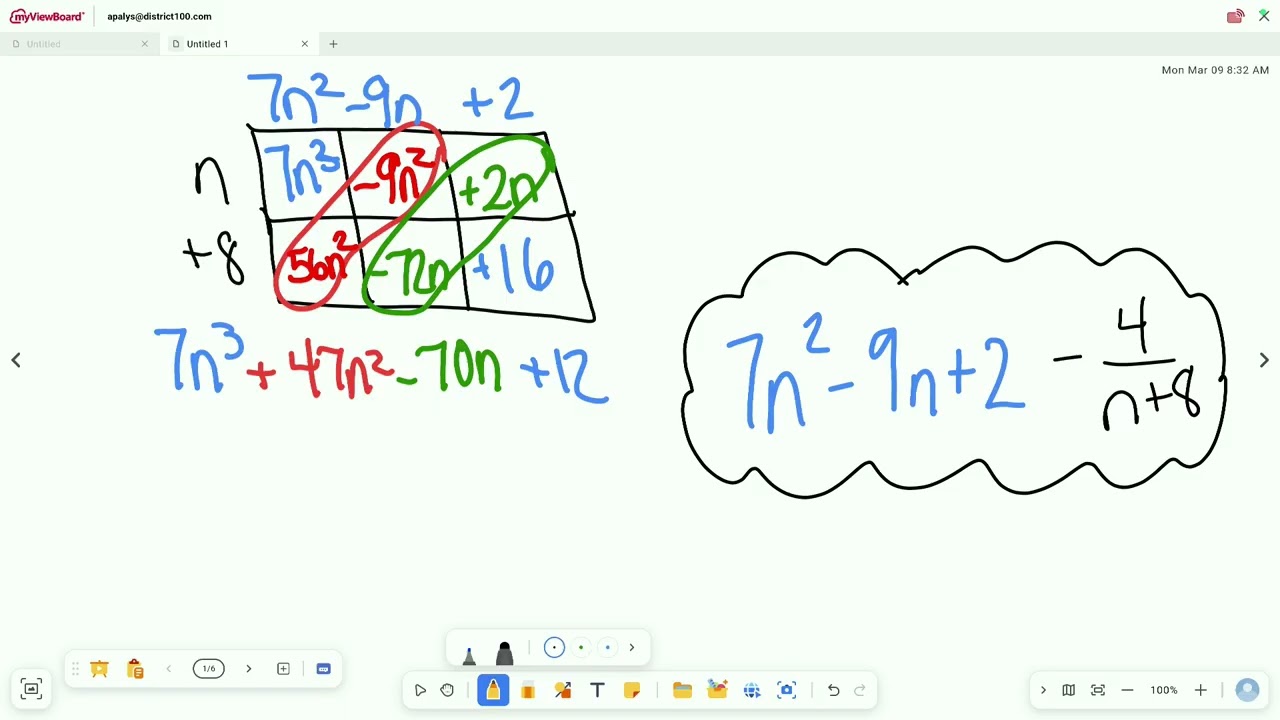 myViewBoard apalys@district100.com
Untitled
Untitled 1
Mon Mar 09 8:32 AM
7n² -9n +2
n 7n³ -9n² +2n
+8 56n² -72n +16
7n³ + 47n² - 70n +12
7n² - 9n + 2 - 4/(n+8)
1/6
T
100%